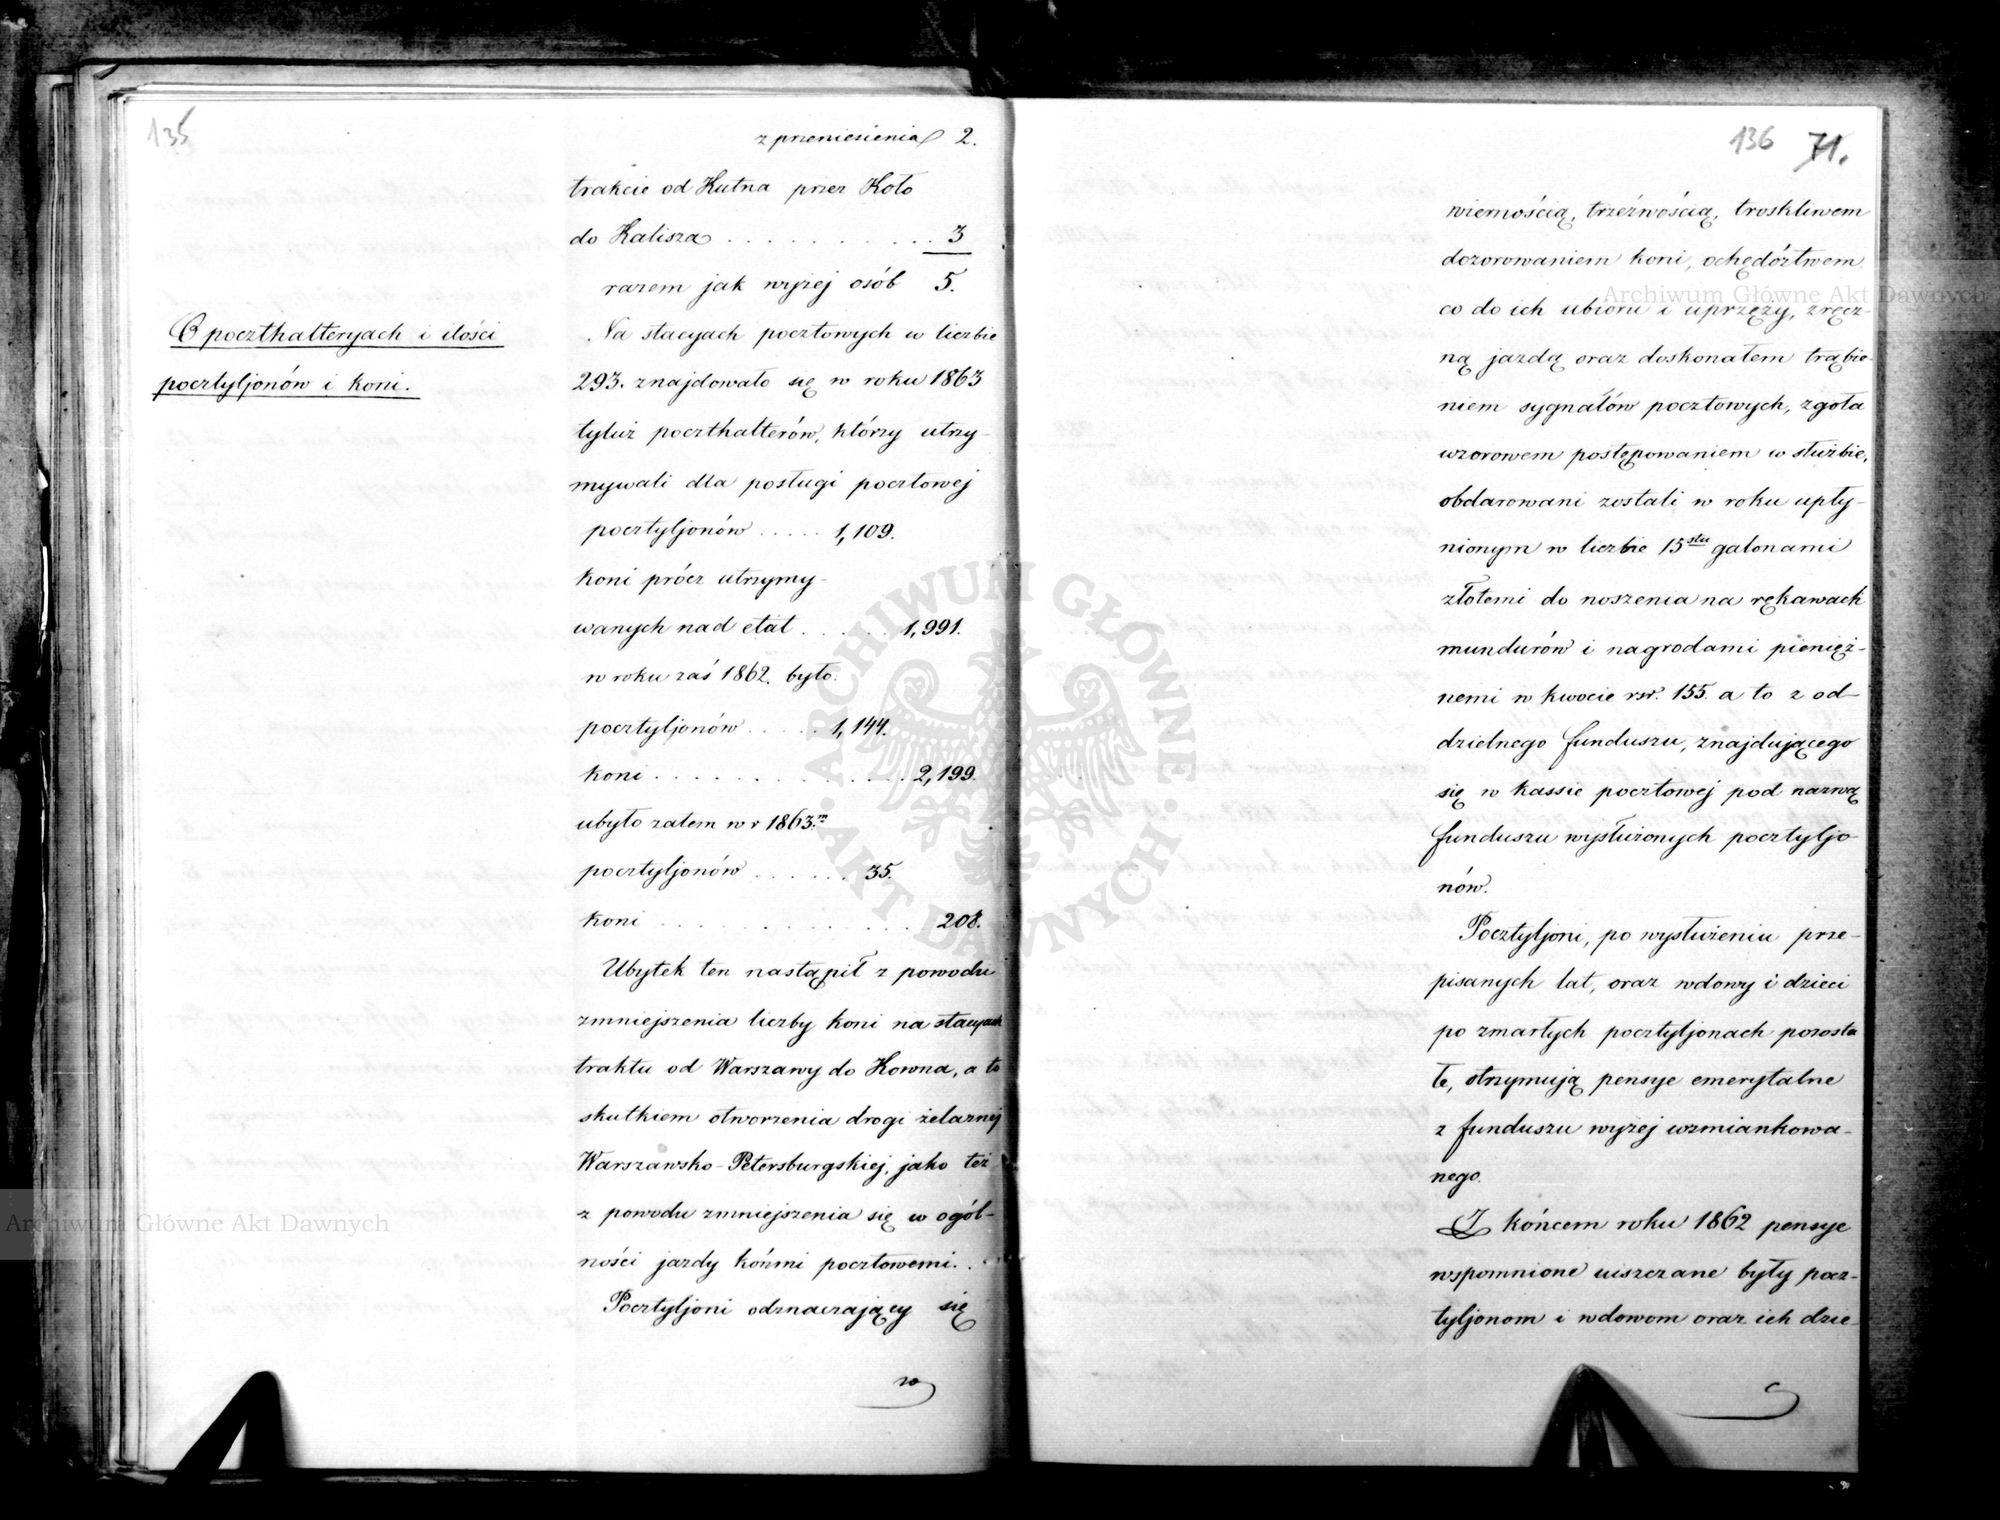 135
z przeniesienia 2.
trakcie od Kutna przez Koło
do Kalisza . . . . . . . . . . 3
razem jak wyżej osób 5.
O poczthalteryach i ilości
pocztyljonów i koni.
Na stacyach pocztowych w liczbie
293. znajdowało się w roku 1863
tyluż poczthalterów, którzy utrzy-
mywali dla posługi pocztowej
pocztyljonów . . . . . 1,109.
koni prócz utrzymy-
wanych nad etat . . . . . . 1,991.
w roku zaś 1862. było:
pocztyljonów . . . . . 1,144.
koni . . . . . . . . . . . . . 2,199.
ubyło zatem w r 1863.m
pocztyljonów . . . . . . 35.
koni . . . . . . . . . . . . . 208.
Ubytek ten nastąpił z powodu
zmniejszenia liczby koni na stacyach
traktu od Warszawy do Kowna, a to
skutkiem otworzenia drogi żelaznej
Warszawsko-Petersburgskiej, jako też
z powodu zmniejszenia się w ogól-
ności jazdy końmi pocztowemi.
Pocztyljoni odznaczający się
w
136 71.
wiernością, trzeźwością, troskliwem
dozorowaniem koni, ochędóztwem
co do ich ubioru i uprzęży, zręcz-
ną jazdą oraz doskonałem trąbie-
niem sygnałów pocztowych, zgoła
wzorowem postępowaniem w służbie,
obdarowani zostali w roku upły-
nionym w liczbie 15stu galonami
złotemi do noszenia na rękawach
mundurów i nagrodami pienięż-
nemi w kwocie rsr. 155. a to z od-
dzielnego funduszu, znajdującego
się w kassie pocztowej pod nazwą
funduszu wysłużonych pocztyljo-
nów.
Pocztyljoni, po wysłużeniu prze-
pisanych lat, oraz wdowy i dzieci
po zmarłych pocztyljonach pozosta
łe, otrzymują pensye emerytalne
z funduszu wyżej wzmiankowa-
nego.
Z końcem roku 1862 pensye
wspomnione uiszczane były pocz-
tyljonom i wdowom oraz ich dzie-
c
Archiwum Główne Akt Dawnych
Archiwum Główne Akt Dawnych
ARCHIWUM GŁÓWNE · AKT DAWNYCH ·